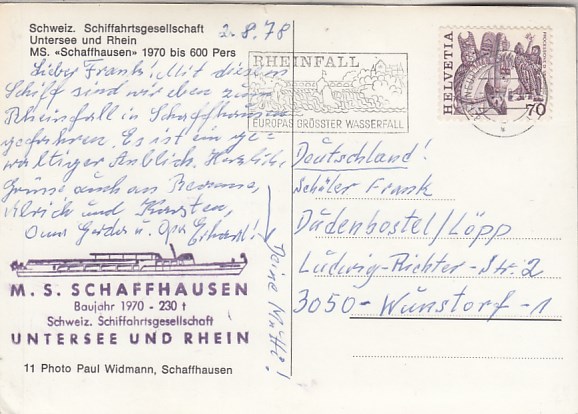 Schweiz. Schiffahrtsgesellschaft
Untersee und Rhein
MS. «Schaffhausen» 1970 bis 600 Pers
2.8.78
Lieber Frank! Mit diesem
Schiff sind wir eben zum
Rheinfall in Schaffhausen
gefahren. Es ist ein ge-
waltiger Anblick. Herzliche
Grüsse auch an
Ulrich und Karsten,
Oma Gerda u. Opa Erhard!
Deine Mutti!
M. S. SCHAFFHAUSEN
Baujahr 1970 - 230 t
Schweiz. Schiffahrtsgesellschaft
UNTERSEE UND RHEIN
11 Photo Paul Widmann, Schaffhausen
RHEINFALL
EUROPAS GRÖSSTER WASSERFALL
HELVETIA
70
Deutschland!
Schüler Frank
Dudenbostel/Löpp
Ludwig-Richter-Str. 2
3050 - Wunstorf - 1